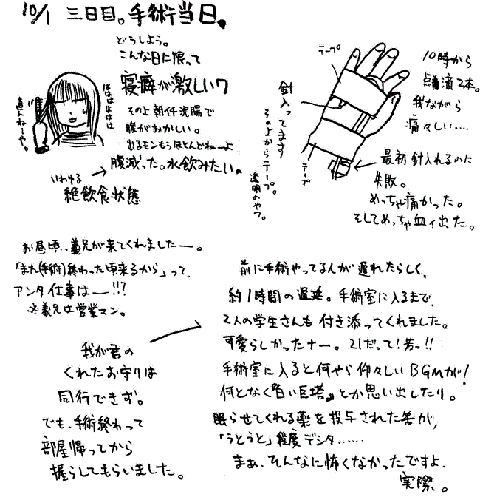 10/1 三日目。手術当日。
どうしよう。
こんな日に限って
寝癖が激しい?
その上朝イチ浣腸で
腹がおかしい。
出るモンもうほとんどねーよ
腹減った。水飲みたい。
いわゆる
絶飲食状態
ははははは
直んねーや。
テープ
針入ってます
その上からテープ。
透明のやつ。
テープ
10時から
点滴2本。
我ながら
痛々しい…
最初針入れるのに
失敗。
めっちゃ痛かった。
そしてめっちゃ血ィ出た。
お昼頃、義兄が来てくれましたー。
「また(手術)終わった頃来るから」って、
アンタ仕事はー!!?
※義兄は営業マン。
我が君の
くれたお守りは
同行できず。
でも、手術終わって
部屋帰ってから
握らしてもらいました。
前に手術やってる人が遅れたらしく、
約1時間の遅延。手術室に入るまで、
2人の学生さんも付き添ってくれました。
可愛らしかったナー。21だって!若っ!!
手術室に入ると何やら仰々しいBGMが!
何となく『白い巨塔』とか思い出したり。
眠らせてくれる薬を投与された筈が、
「うとうと」程度デシタ……
まぁ、そんなに怖くなかったですよ、
実際。